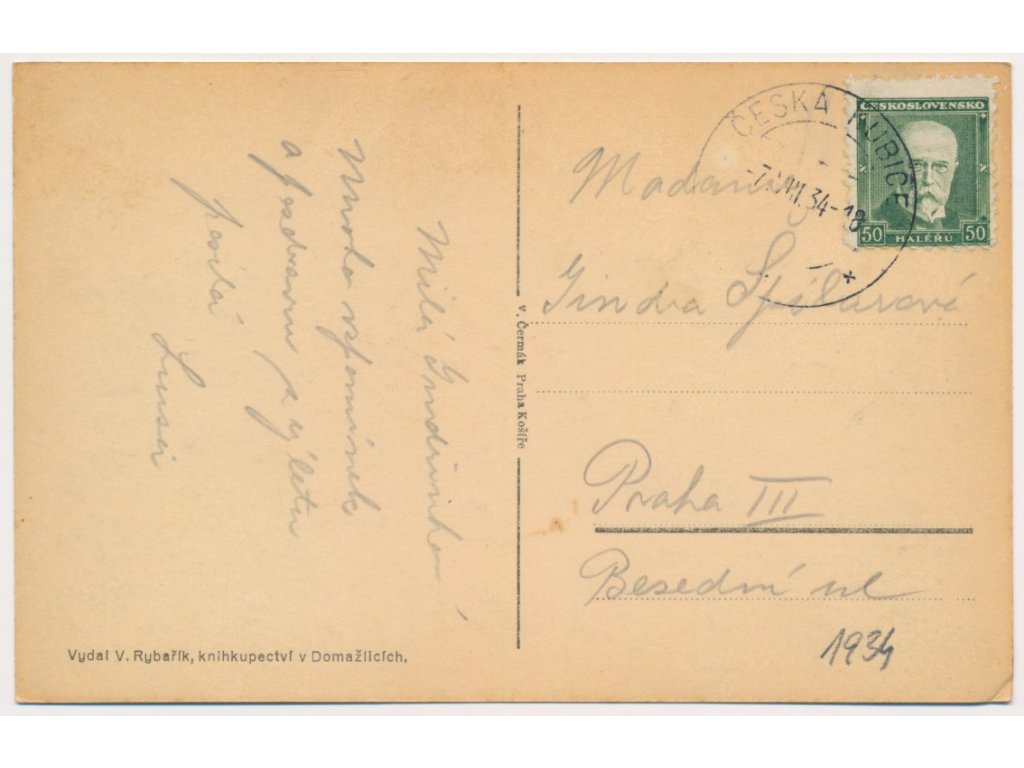 Milá Jindřinko!
Mnoho vzpomínek
a pozdravů z výletu
posílá
V. Čermák Praha Košíře
Vydal V. Rybařík, knihkupectví v Domažlicích.
ČESKÁ KUBICE
34-18
ČESKOSLOVENSKO
50 HALÉŘŮ 50
Jindra Špilarová
Praha III
Besední ul
1934